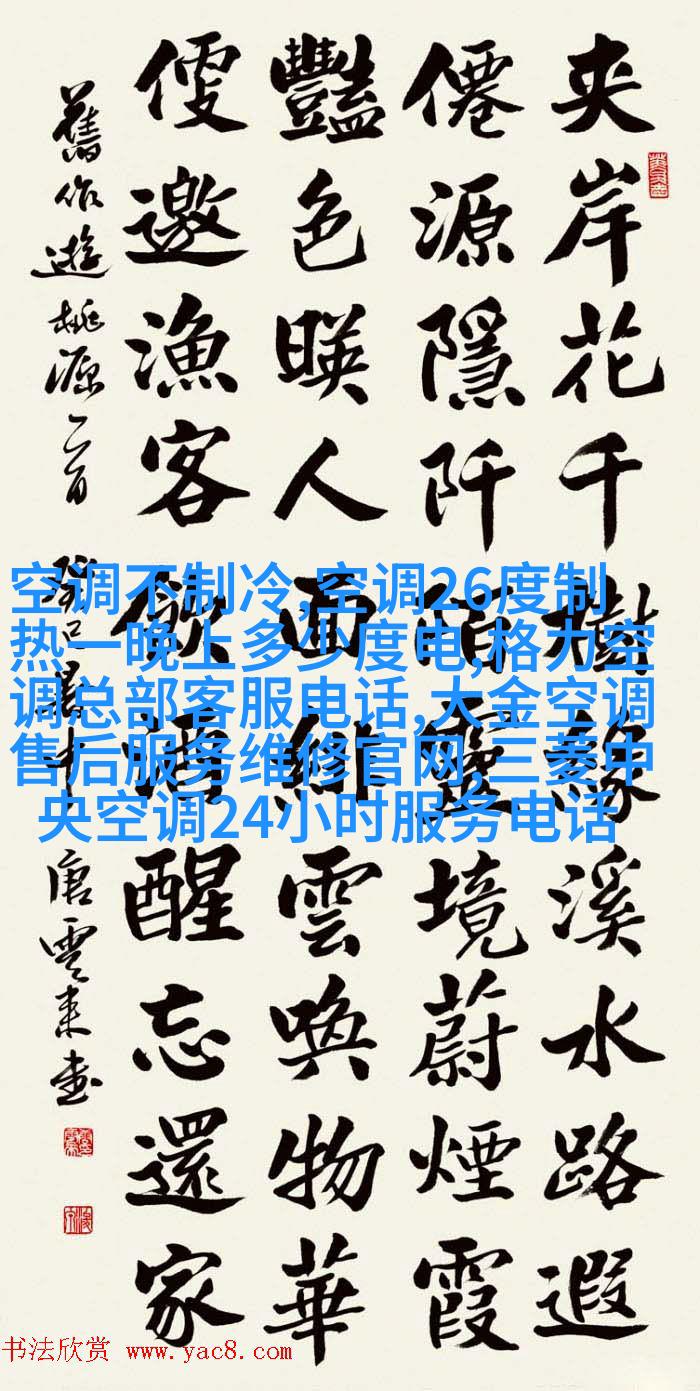 夾岸花千樹緣溪水路遐
僊源隱阡陌靈境蔚煙霞
豔色暎人面緋雲喚物華
便邀漁客飲酒醒忘還家
舊作遊桃源二首 唐雲來書
空调不制冷,空调26度制
热一晚上多少度电,格力空
调总部客服电话,大金空调
售后服务维修官网,三菱中
央空调24小时服务电话
书法欣赏 www.yac8.com